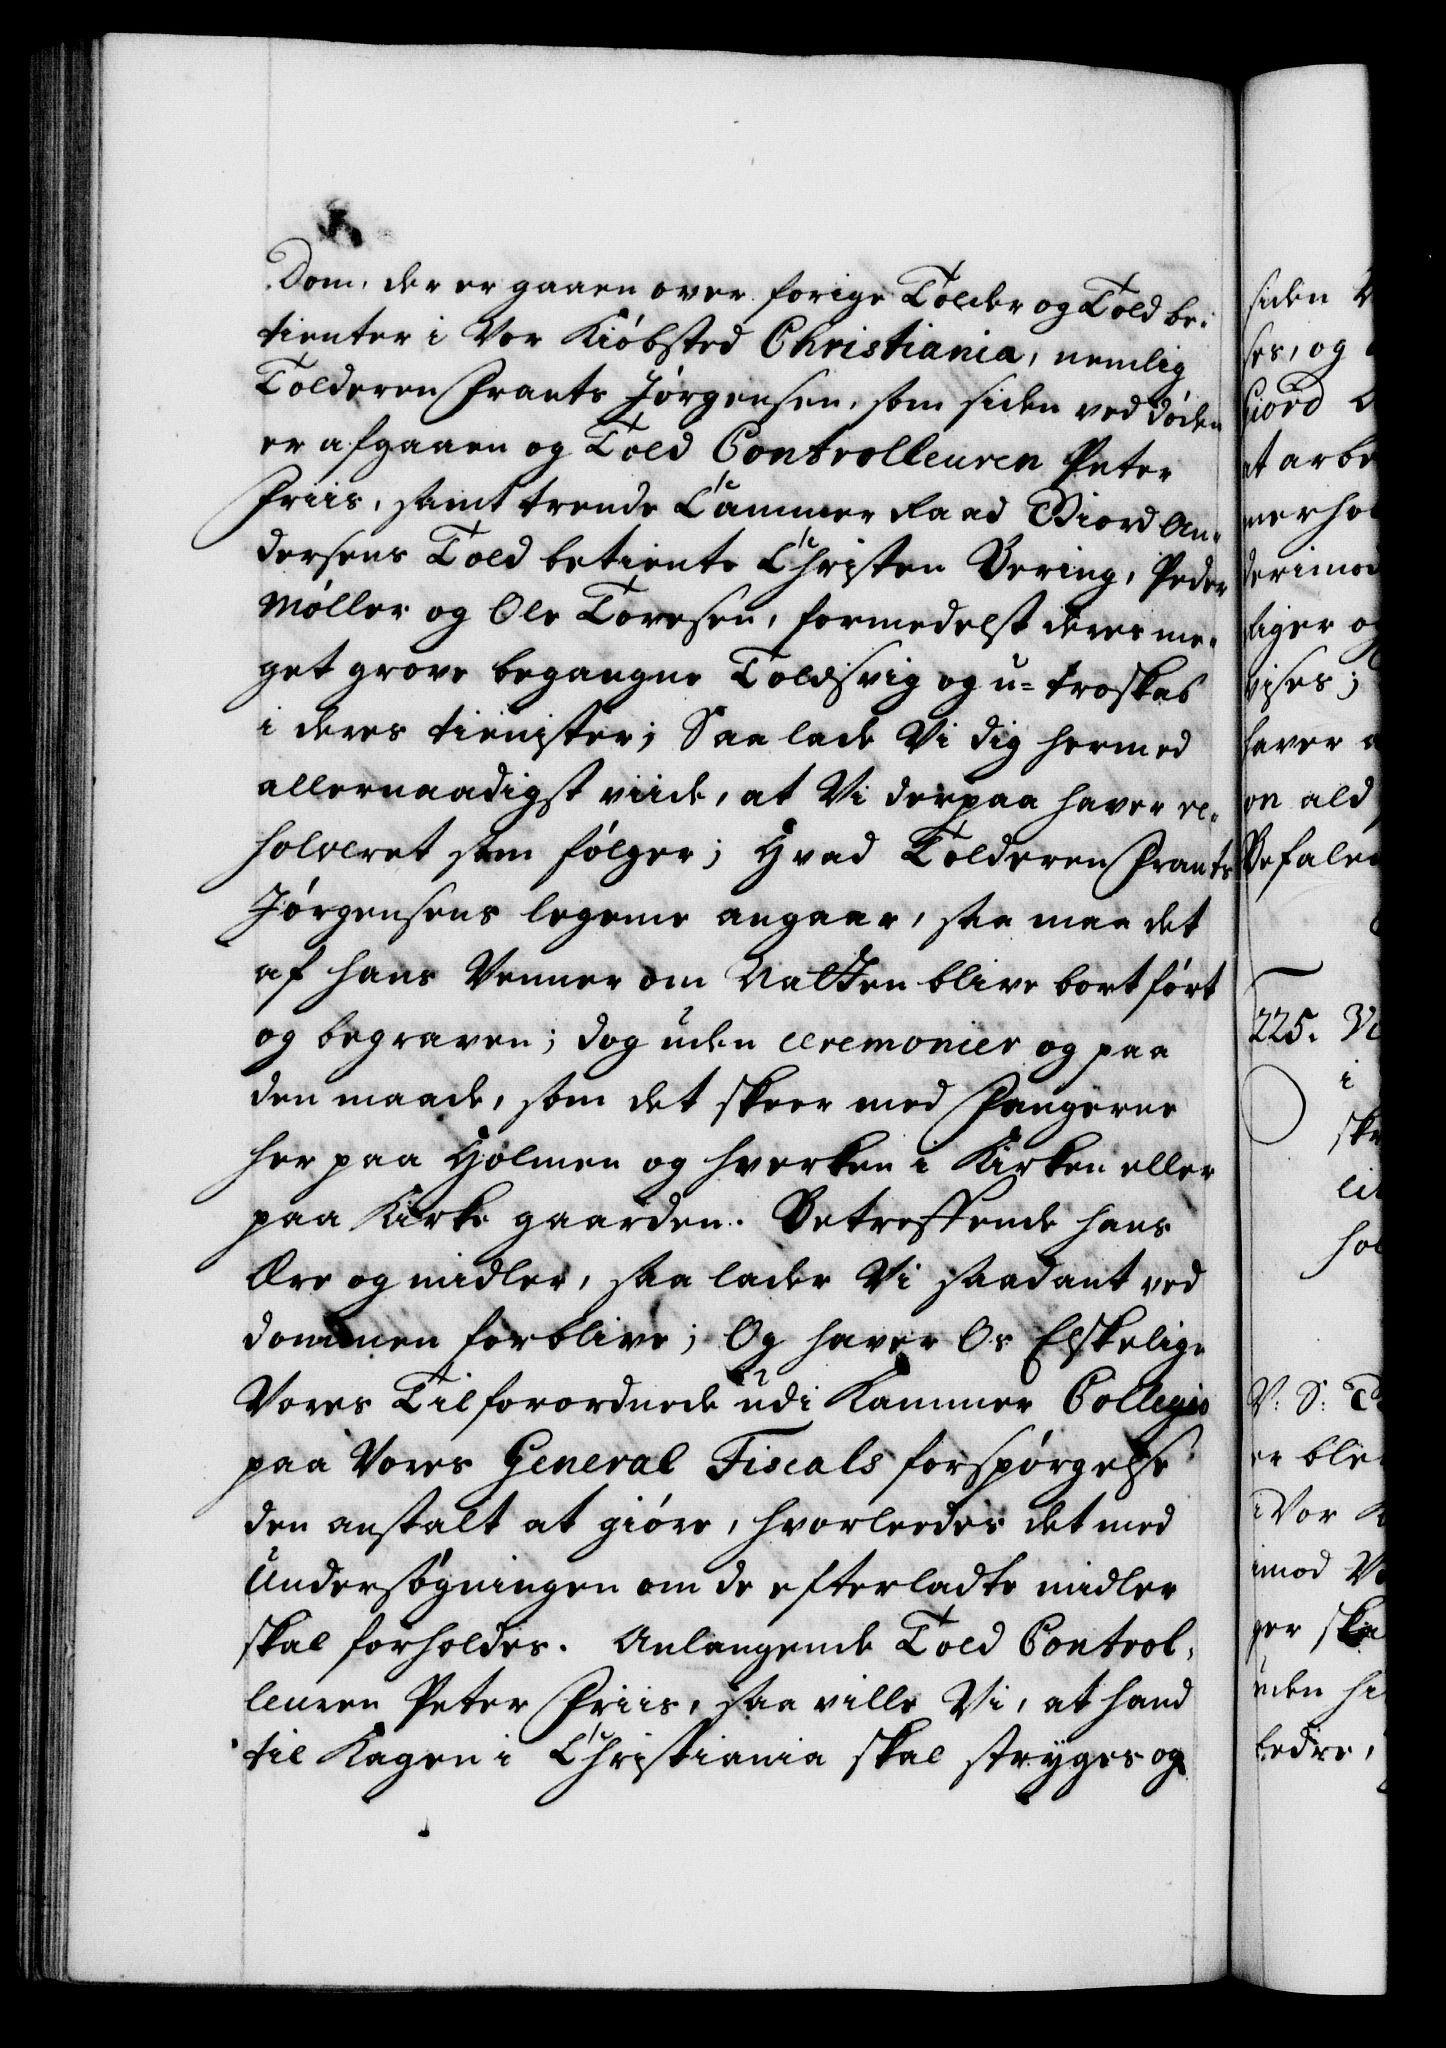 Dom, der er gaaen over forige Tolder og Told be-
tienter i Vor Kiøbsted Christiania, nemlig
Tolderen Frants Jørgensen, som siden ved døden
er afgaaen og Told Controlleuren Peter
Friis, samt trende Cammer Raad Tiord An-
dersens Told betiente Christen Bering, Peder
Møller og Ole Toresen, formedelst deres me-
get grove begangne Toldsvig og u-troskab
i deres tienister; Saa lade Vi dig hermed
allernaadigst viide, at Vi derpaa haver re-
solveret som følger; Hvad Tolderen Frants
Jørgensens legeme angaar, saa maa det
af hans Venner om Natten blive bortført
og begraven; dog uden ceremonier og paa
den maade, som det skeer med Fangerne
her paa Holmen og hverken i Kirken eller
paa Kirke gaarden. Betreffende hans
Ære og midler, saa lader Vi saadant ved
dommen forblive; Og haver Os Elskelige
Vores Tilforordnede udi Kammer Collegio
paa Vores General Fiscals forspørgelse
den anstalt at giøre, hvorledes det med
Undersøgningen om de efterladte midler
skal forholdes. Anlangende Told Control-
leuren Peter Friis, saa ville Vi, at hand
til Kagen i Christiania skal stryges og
siden
ses, og
fiord
at arbe
merhol
derimod
liger og
vises;
haver a
on ald
Befalen
225.
i
skr
hol
V: S: T
er ble
i Vor K
imod V
ger ska
uden hi
bedre,